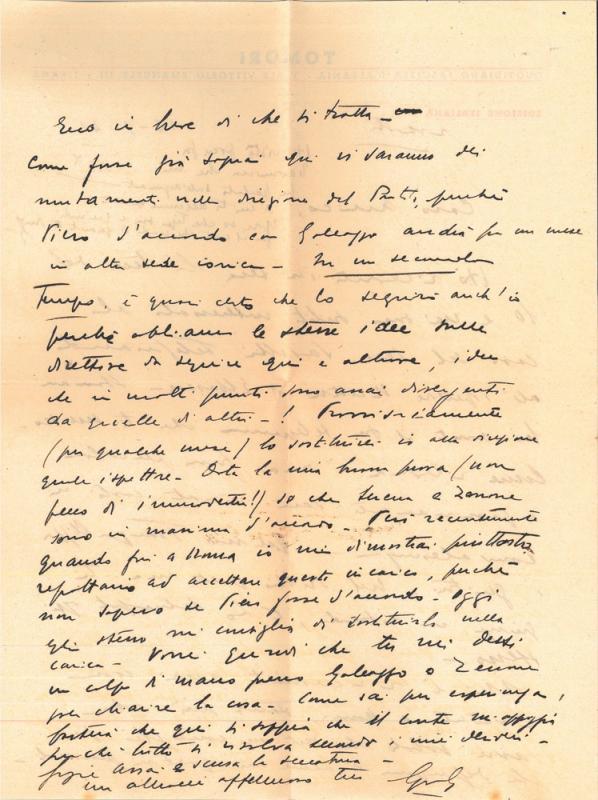 Ecco in breve di che si tratta -
Come forse già saprai qui vi saranno dei
mutamenti nella direzione del Partito, perchè
Piero d'accordo con Galeazzo andrà fra un mese
in altra sede ionica - In un secondo
Tempo è quasi certo che lo seguirò anch'io
perchè abbiamo le stesse idee sulle
direttive da seguire qui e altrove, idee
che in molti punti sono assai divergenti
da quelle di altri - ! Provvisoriamente
(per qualche mese) lo sostituirei io alla direzione
quale ispettore - Data la mia buona prova (non
pecco di immodestia!) so che a Zenone
sono in massima d'accordo - Però recentemente
quando fui a Roma io mi dimostrai piuttosto
ad accettare questo incarico, perchè
non sapevo se Piero fosse d'accordo - Oggi
egli stesso mi consiglia di sostituirlo nella
carica - Vorrei quindi che tu mi dessi
un colpo di mano presso Galeazzo o Zenone
per chiarire la cosa - Come sai per esperienza,
basterà che qui si sappia che il conte mi appoggi
perchè tutto si risolva secondo i miei desideri -
Grazie assai e scusa la seccatura -
un abbraccio affettuoso tuo
TOMORI
QUOTIDIANO FASCISTA D'ALBANIA - VIALE VITTORIO EMANUELE III - TIRANA
EDIZIONE ITALIANA